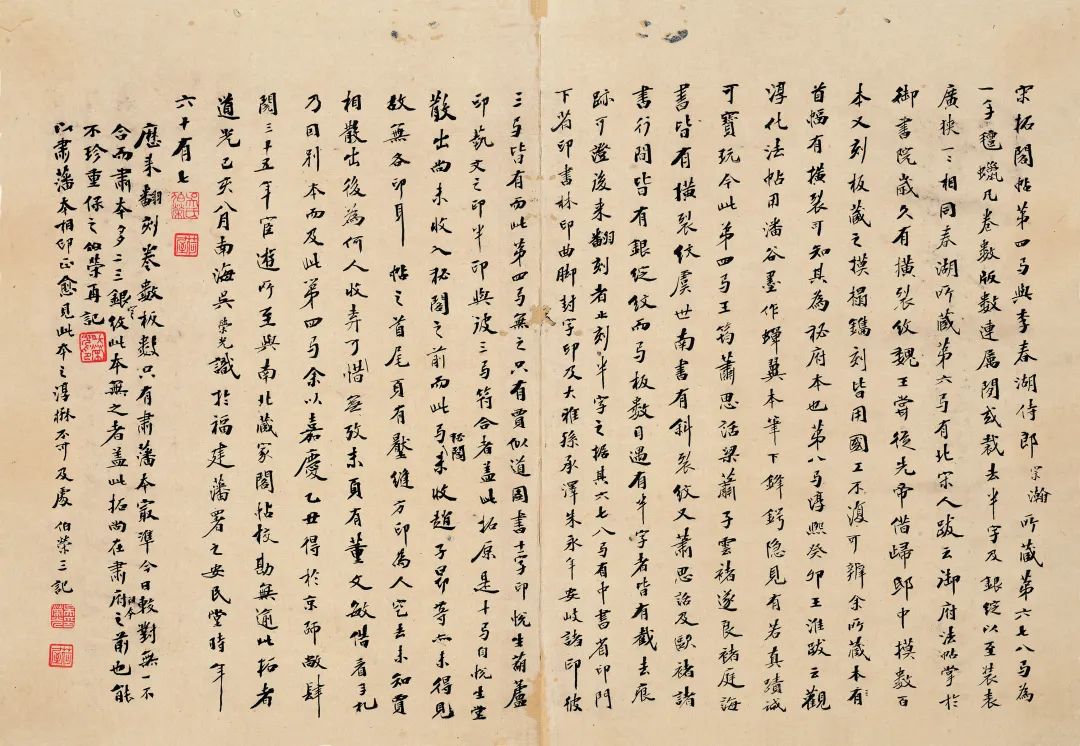 宋拓閣帖第四与李春湖侍郎宗瀚所藏第六七八与為
一手氊蠟凡卷數版數連屬間或裁去半字及銀錠以至裝表
廣狹一一相同春湖所藏第六与有北宋人跋云御府法帖掌於
御書院歲久有橫裂紋魏王嘗從先帝借歸邸中摸數百
本又刻板藏之摸搨鐫刻皆用國工不復可辨余所藏本有
首幅有橫裂可知其為秘府本也第八与淳熙癸卯王淮跋云觀
淳化法帖用潘谷墨作蟬翼本筆下鋒鍔隐見有若真蹟誠
可寶玩今此第四与王筠蕭思話梁蕭子雲褚遂良褚庭誨
書皆有橫裂紋虞世南書有斜裂紋又蕭思話及歐褚諸
書行間皆有銀錠紋而与板數目遇有半字者皆有截去痕
跡可證後来翻刻者止刻半字之據其六七八与有中書省印門
下省印書林印曲脚封字印及大雅孫承澤朱永年安岐諸印彼
三与皆有而此第四与無之只有賈似道圖書十字印悅生葫蘆
印藝文之印半印與彼三与符合者盖此拓原是十与自悅生堂
散出尚未收入秘閣之前而此与未收秘閣趙子昂等亦未得見
故無各印耳 帖之首尾頁有壓縫方印為人空去未知賈
相散出後為何人收弆可惜無攷末頁有董文敏借看手札
乃回別本而及此第四与余以嘉慶乙丑得於京師敝肆
閱三十五年宦遊所至與南北藏家閣帖校勘無逾此拓者
道光己亥八月南海吳榮光識於福建藩署之安民堂時年
六十有七
歷来翻刻卷數板數只有肅藩本最準今日較對無一不
合而肅本多一二三銀紋此本無之者盖此拓尚在肅府之前也能
不珍重保之伯榮再記
以肅藩本相印正愈見此本之淳楙不可及處伯榮三記